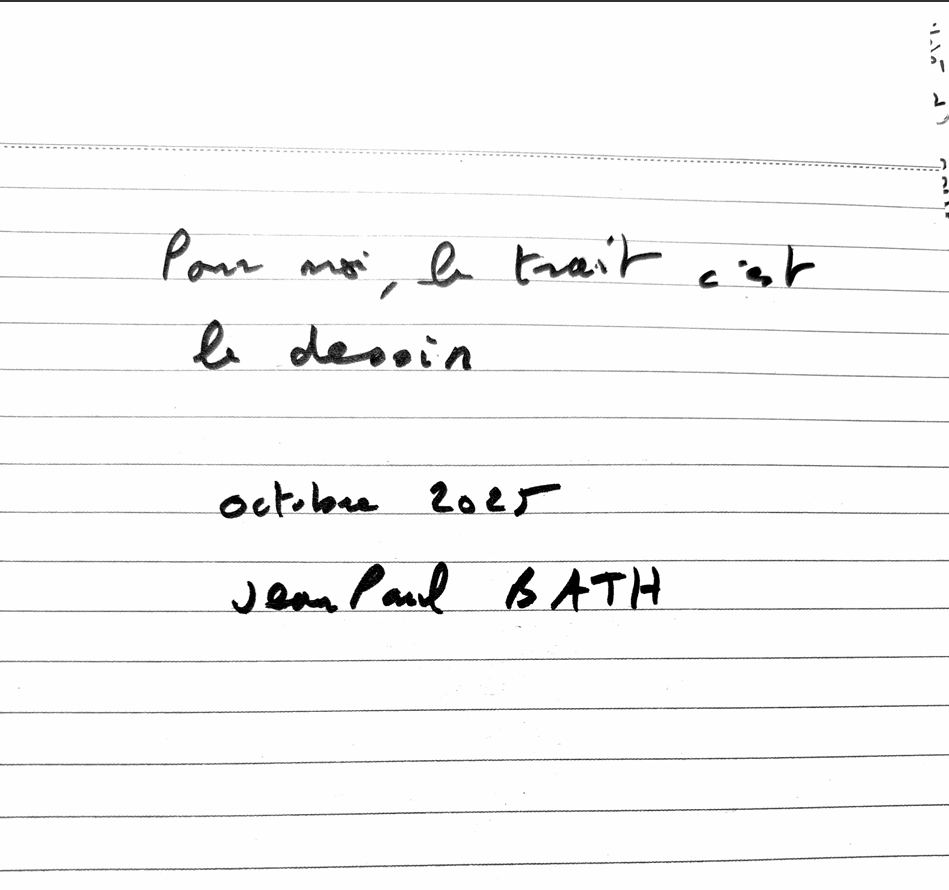 Pour moi, le trait c'est
le dessin
octobre 2025
Jean Paul BATH